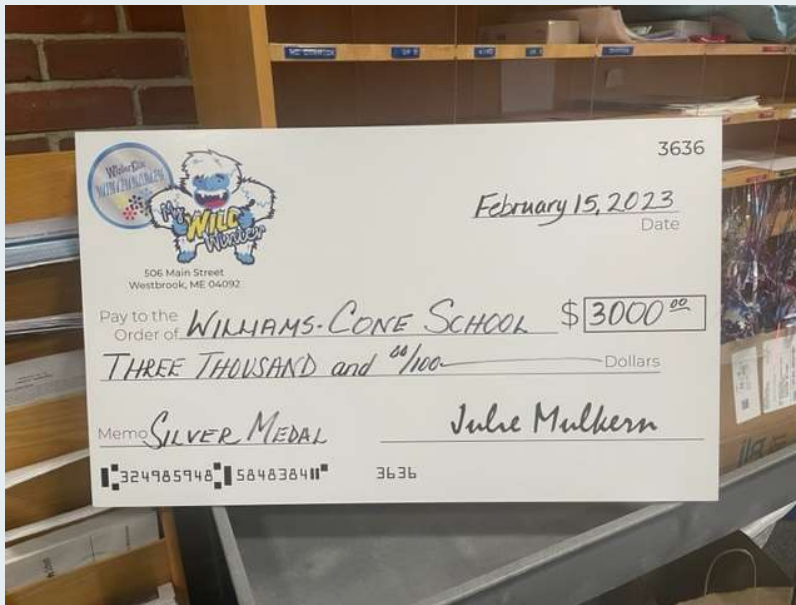 3636
WinterKids
My
WILD
Winter
506 Main Street
Westbrook, ME 04092
February 15, 2023
Date
Pay to the
Order of WILLIAMS-CONE SCHOOL $ 3000 00
THREE THOUSAND and 00/100 Dollars
Memo SILVER MEDAL Julie Mulkern
324985948 58483841 3636